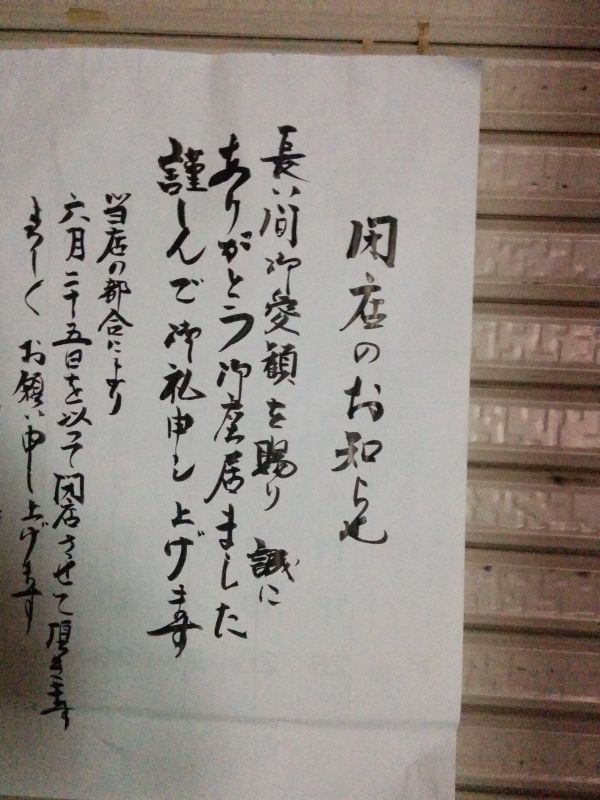 閉店のお知らせ
長い間御愛顧を賜り 誠に
ありがとう御座居ました
謹しんで御礼申し上げます
当店の都合により
六月二十五日を以って閉店させて頂きます
よろしくお願い申し上げます